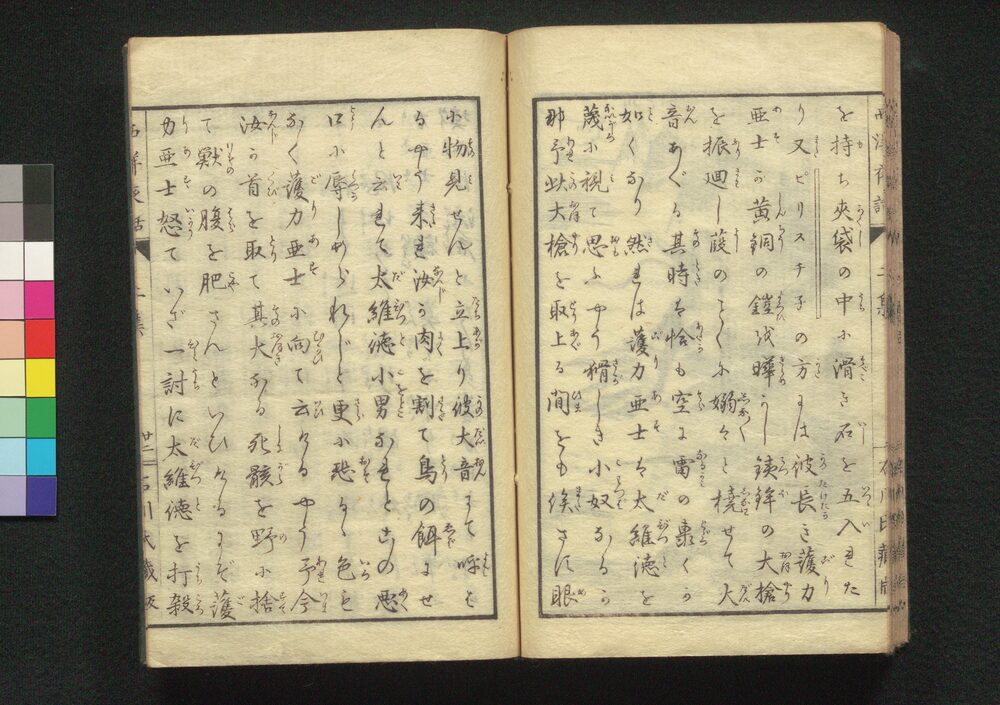 を持ち夾袋の中に滑き石を五入れた
り又ピリスチ子の方には彼長き護力
亜士か黄銅の鎧を曄かし銕鉾の大槍
を振廻し葭のことくに嫋々と橈せて大
音あぐる其時は恰も空に雷の轟くか
如くなり然は護力亜士は太維徳を
蔑に視て思ふやう猾しき小奴なるか
那予此大槍を取上る間をも俟さに眼
小物見せんと立上り彼大音にて呼は
るやう来れ汝か肉を割て鳥の餌にせ
んと云れて太維徳小男なれとこの悪
口に辱しめられじと更に恐るゝ色も
なく護力亜士に向て云けるやう予今
汝か首を取て其大なる死骸を野に捨
て獣の腹を肥さんといひけるにぞ護
力亜士怒ていざ一討に太維徳を打殺
西洋夜話
二集
廿二
石川氏蔵版